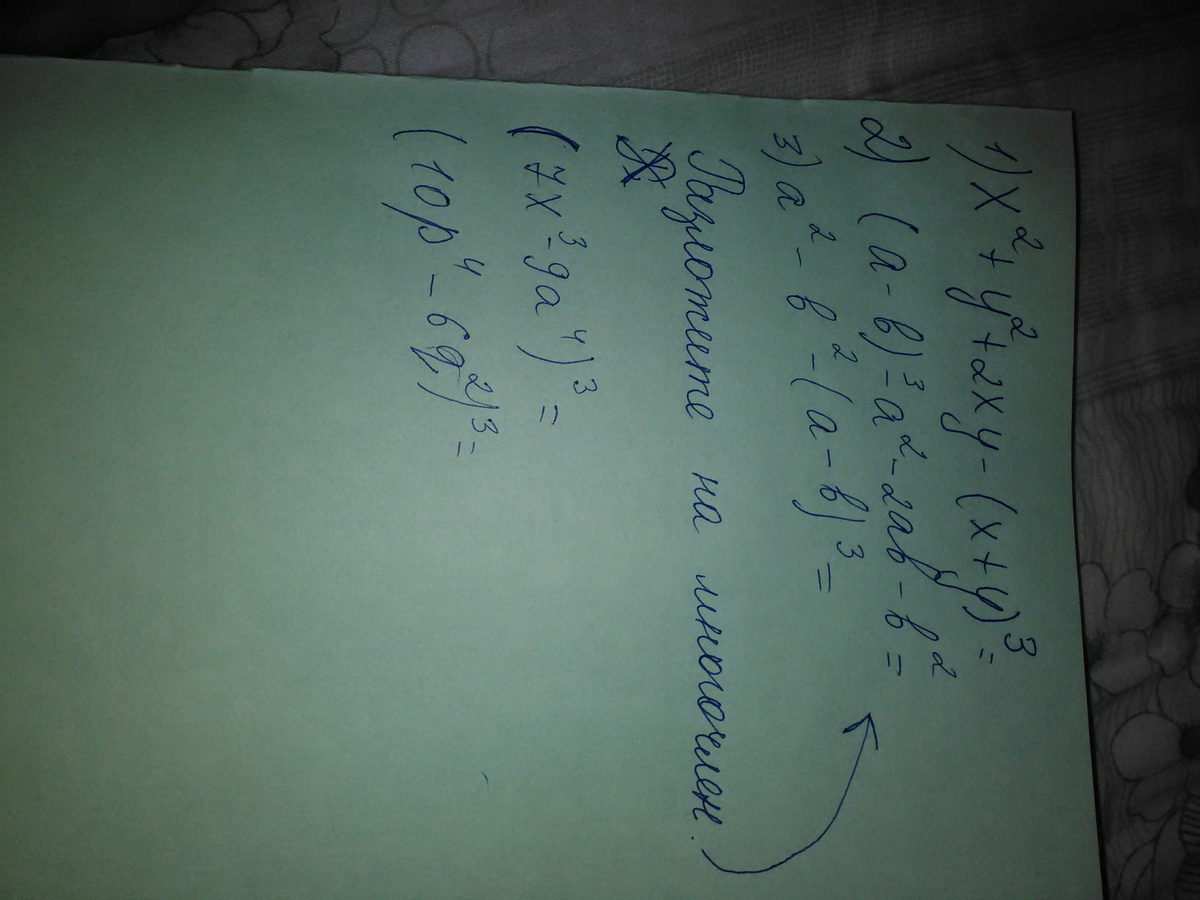 1) x² + y² + 2xy - (x + y)³ =
2) (a - b)³ - a² - 2ab - b² =
3) a² - b² - (a - b)³ =
Разложите на многочлен.)
(7x³ - 9a⁴)³ =
(10p⁴ - 6q²)³ =